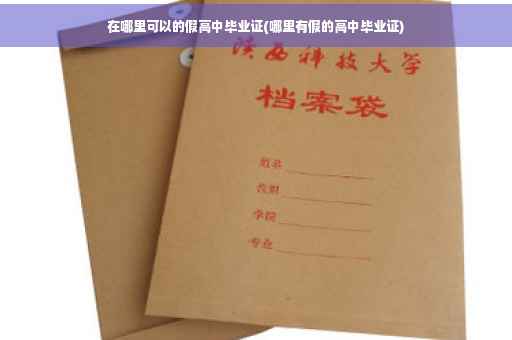 在哪里可以的假高中毕业证(哪里有假的高中毕业证)
陕西科技大学
档案袋
姓名
教职
学院
专业